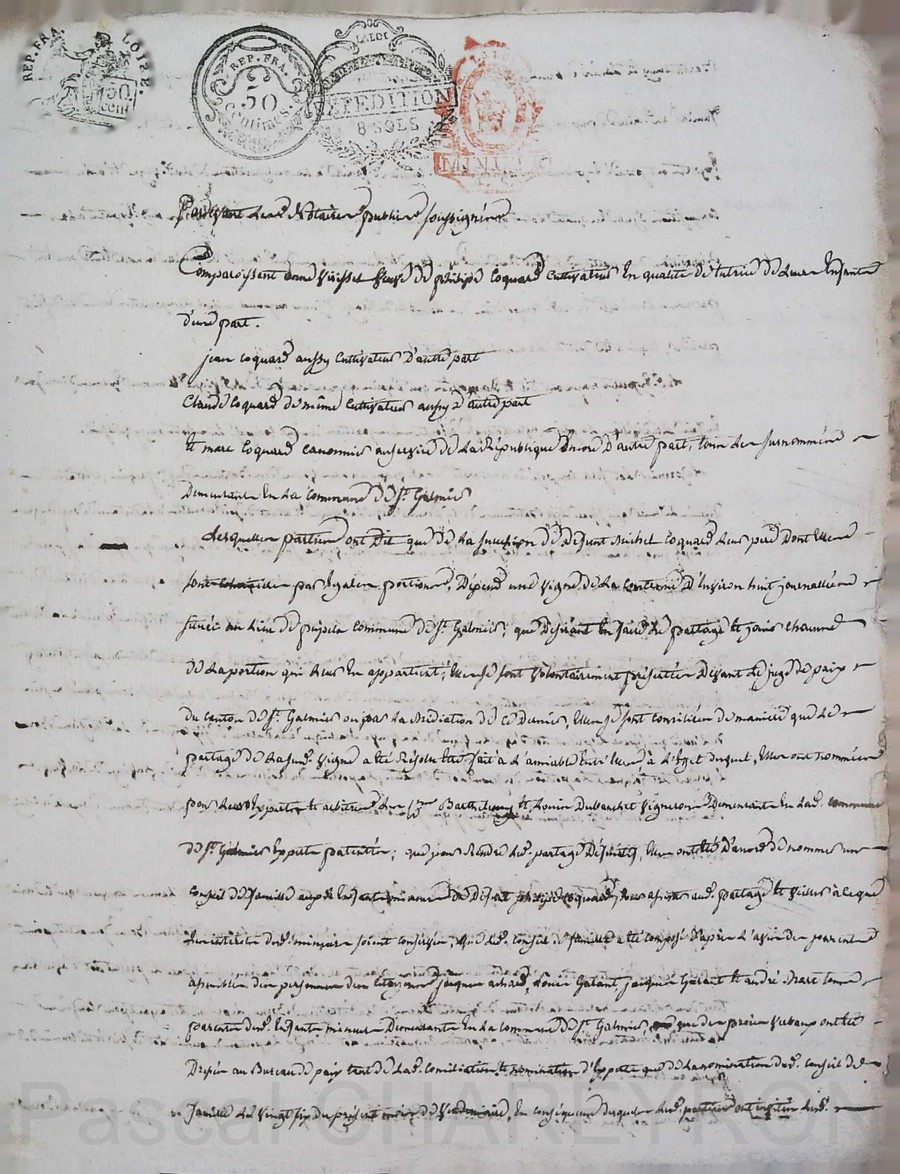 REP. FRA. LOIS E.
50 cent.
REP. FRA.
50
Centimes.
LA LOI
EXPEDITION
8 SOLS
Pardevant Les Notaires publics soussignés
Comparoissent anne veuve de philippe Coquard Cultivateur En qualité de tutrice de Leurs Enfants
d'une part.
jean Coquard aussy Cultivateur D'autre part
Claude Coquard de même Cultivateur aussy d'autre part
Et marc Coquard canonnier au service de La République Encore D'autre part, tous Les surnommés
Demeurants En La Commune De St. Galmier
Lesquelles parties ont Dit que de La succession De Deffunt Michel Coquard Leur père Dont Elles
sont par Egales portions, Dépend une vigne De La Contenue D'Environ huit journalées
située au Lieu De Commune De St. Galmier; que Désirant En faire Le partage Et jouir chacune
De La portion qui Leur En appartient; Elles se sont volontairement présentées Devant Le juge de paix
du Canton De St. Galmier ou par La Médiation De ce Dernier, Elles se sont Conciliées De manière que Le
partage De La susd. vigne a été Résolu Etre fait à L'amiable Entr'Elles à L'Effet duquel, Elles ont nommées
pour Leurs Experts Et arbitres Les Barthelemy Et Louis Dubanchet vignerons Demeurants En Lad. commune
De St. Galmier Experts patentés; que pour Rendre Led. partage Définitif, Elles ont été D'accord De nommer un
Conseil De famille aux Enfants mineurs De Défunt philippe Coquard, pour aud. partage Et veiller à ce que
Les intérêts desd. mineurs soient Conservés; que Led. Conseil De famille a été Composé D'après L'avis Des parents
assemblés Des personnes Des Citoyens jacques Louis Galant, jacques Et andré Marc tous
parents desd. Enfants mineurs Demeurants En La Commune De St. Galmier, que Des procès verbaux ont été
Dressés au Bureau De paix tant De Lad. Conciliation Et nomination D'Experts que De La nomination dud. Conseil De
famille Le vingt six du présent mois De vendémiaire, En conséquence Desquels Lesd. parties ont Lesd.
Pascal CHARLEYRON